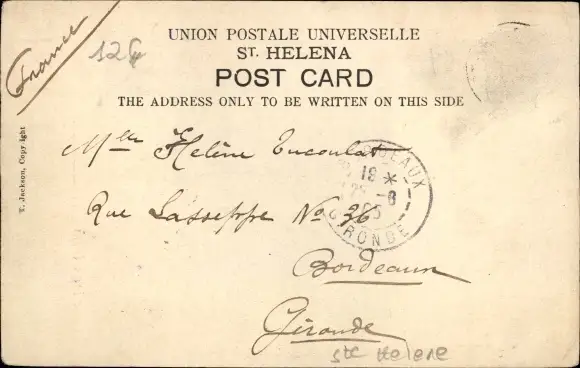 France
12
UNION POSTALE UNIVERSELLE
ST. HELENA
POST CARD
THE ADDRESS ONLY TO BE WRITTEN ON THIS SIDE
T. Jackson, Copyright
Mlle Helène
Rue Lasseppe No 36
Bordeaux
Gironde
BORDEAUX
18 *
GIRONDE
Ste Helene